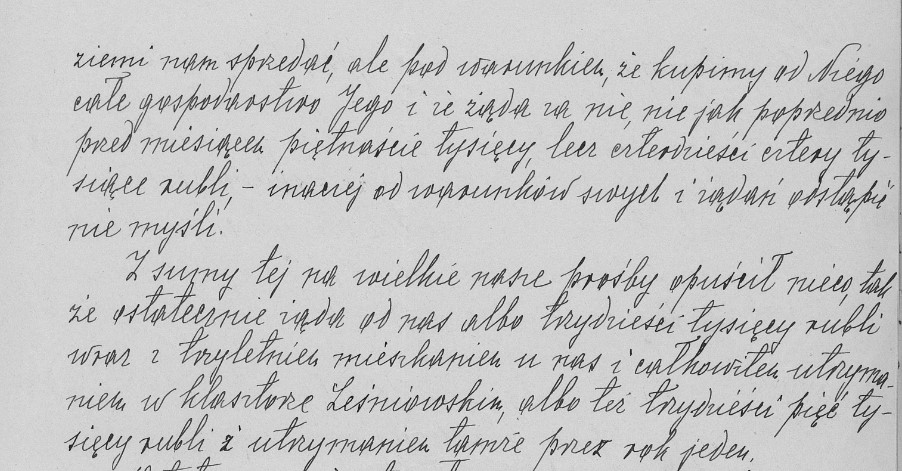 ziemi nam sprzedać, ale pod warunkiem, że kupimy od Niego
całe gospodarstwo Jego i że żąda za nie, nie jak poprzednio
przed miesiącem piętnaście tysięcy, lecz czterdzieści cztery ty-
siące rubli, – inaczej od warunków swych i żądań odstąpić
nie myśli.
Z sumy tej na wielkie nasze prośby opuścił nieco, tak
że ostatecznie żąda od nas albo trzydzieści tysięcy rubli
wraz z trzyletniem mieszkaniem u nas i całkowitem utrzyma-
niem w klasztorze Leśniowskim, albo też trzydzieści pięć ty-
sięcy rubli z utrzymaniem tamże przez rok jeden.